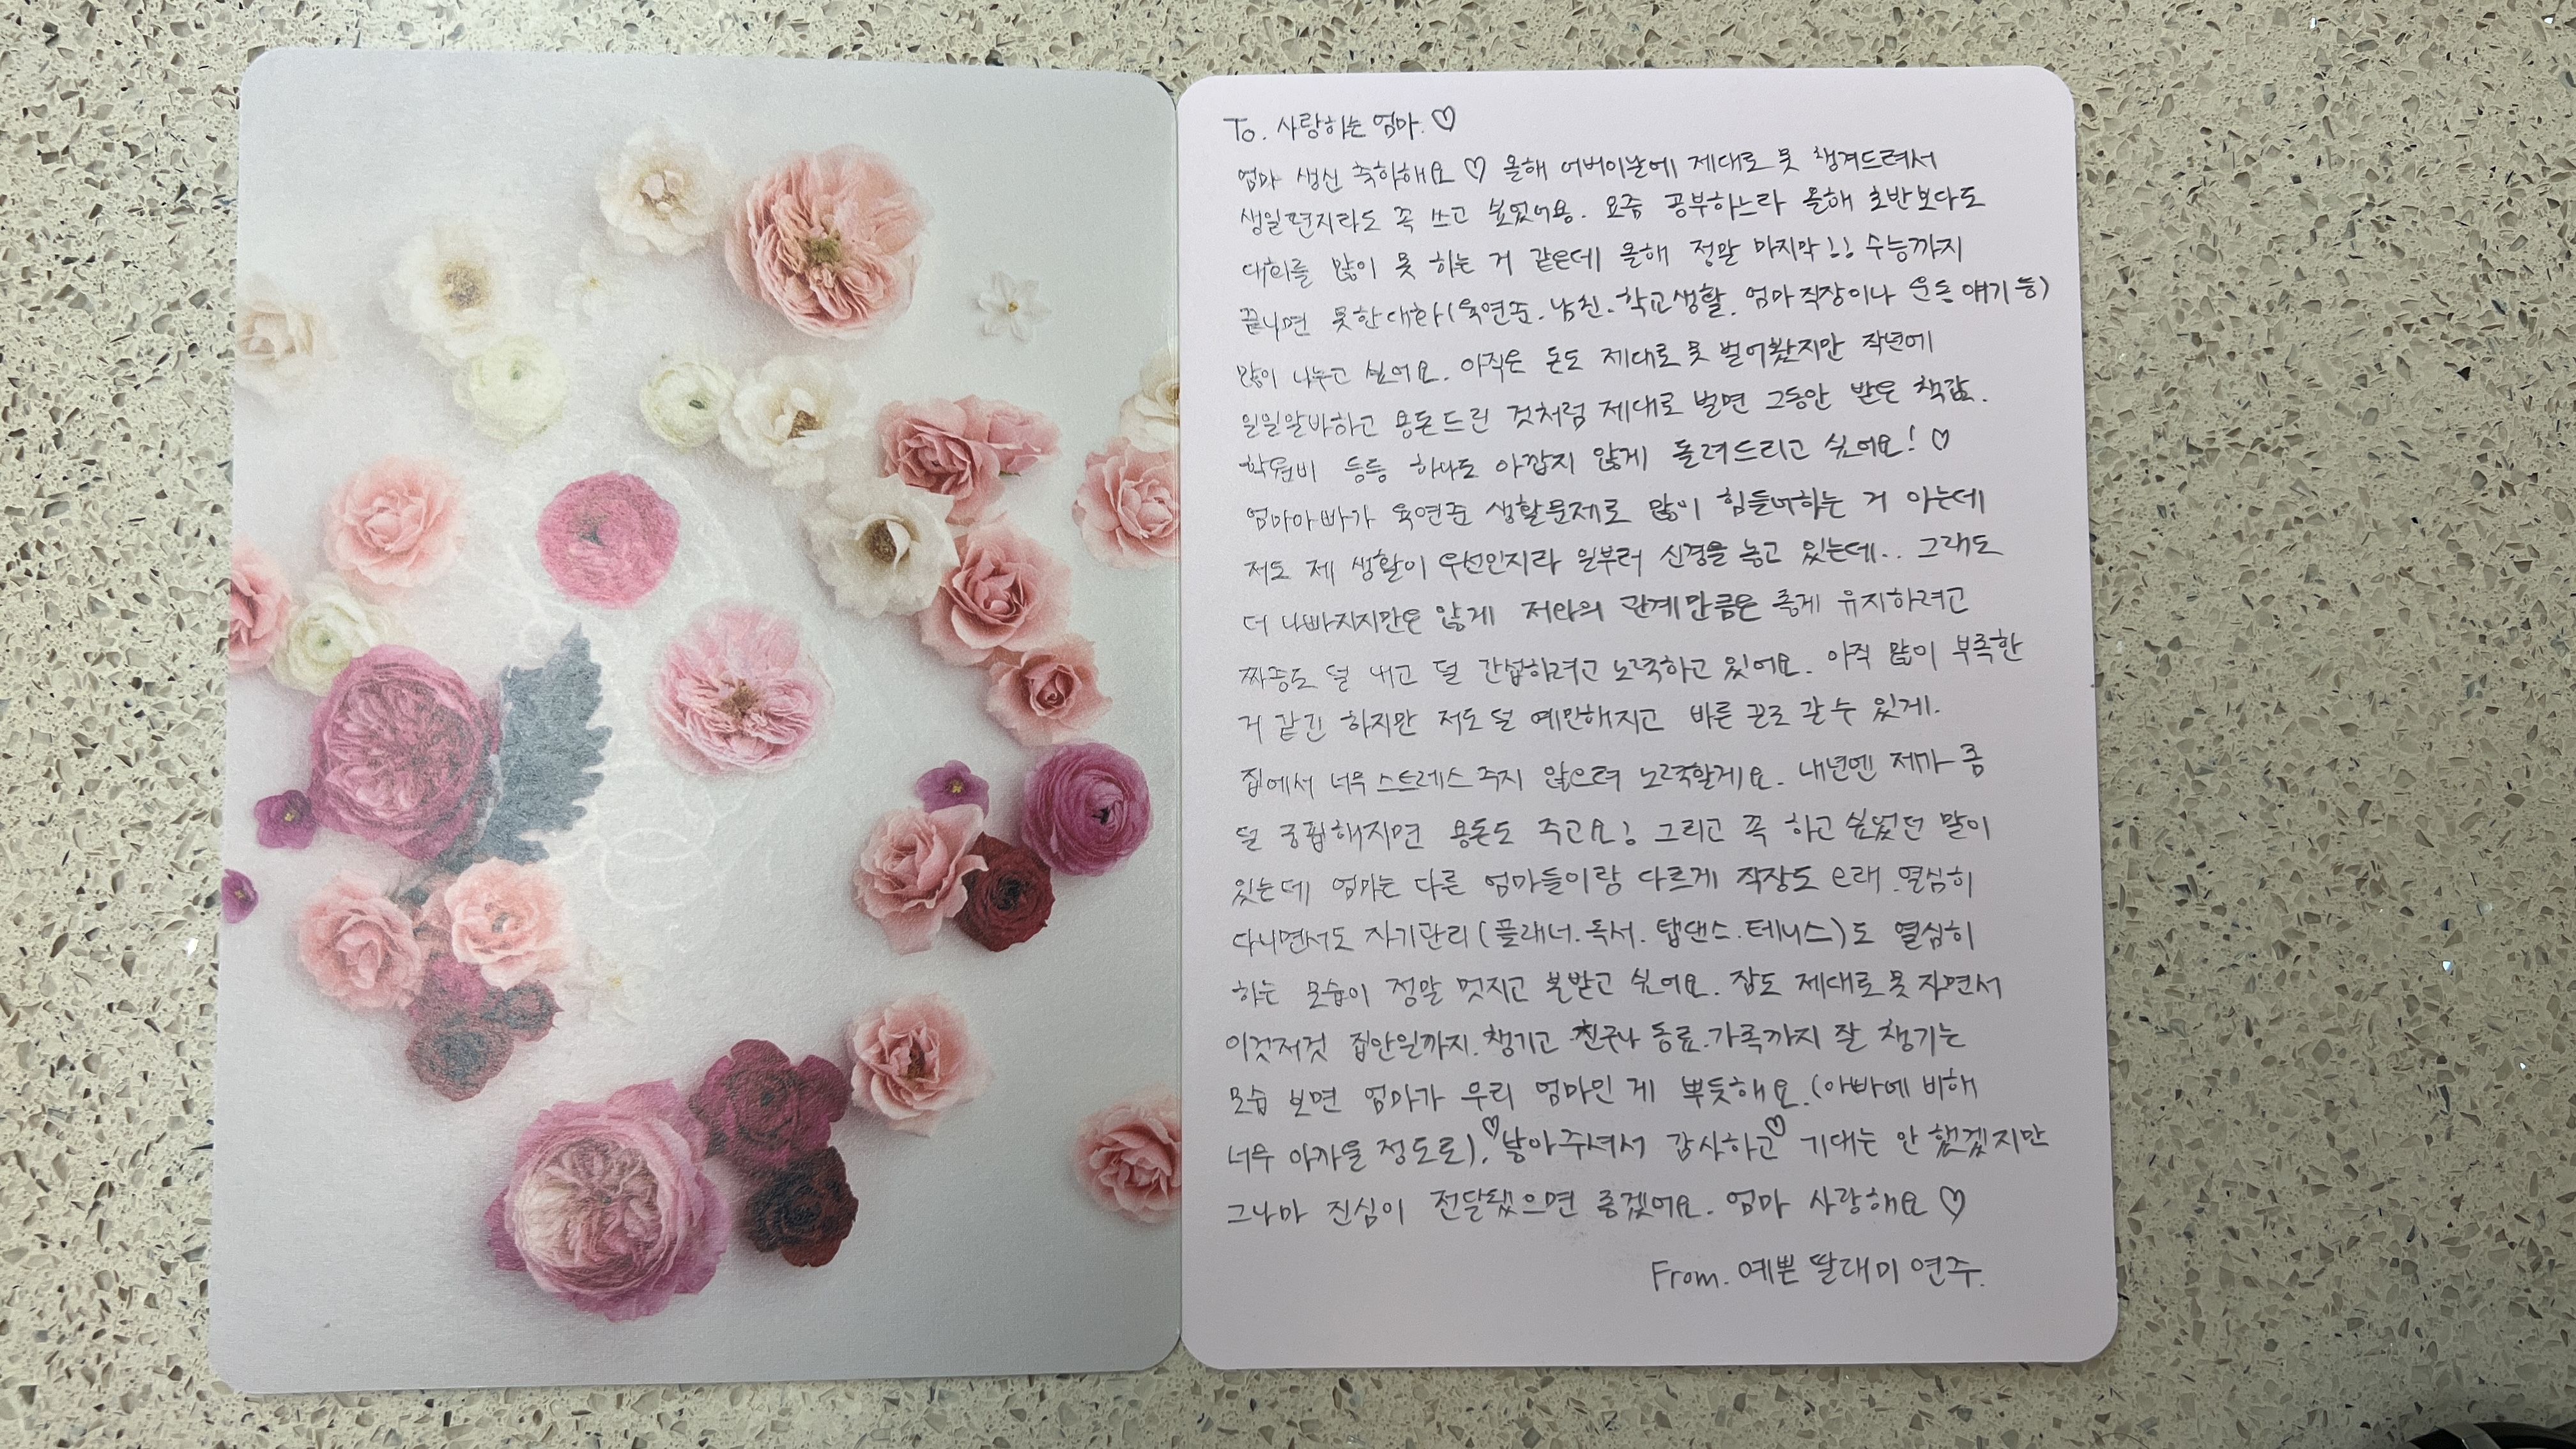 To. 사랑하는 엄마. ♡
엄마 생신 축하해요 ♡ 올해 어버이날에 제대로 못 챙겨드려서
생일편지라도 꼭 쓰고 싶었어용. 요즘 공부하느라 올해 초반보다도
대화를 많이 못 하는 거 같은데 올해 정말 마지막!! 수능까지
끝나면 못한대화(육연준. 남친. 학교생활. 엄마직장이나 운동 얘기 등)
많이 나누고 싶어요. 아직은 돈도 제대로 못 벌어봤지만 작년에
일일알바하고 용돈드린 것처럼 제대로 벌면 그동안 받은 책값.
학원비 등등 하나도 아깝지 않게 돌려드리고 싶어요! ♡
엄마아빠가 육연준 생활문제로 많이 힘들어하는 거 아는데
저도 제 생활이 우선인지라 일부러 신경을 놓고 있는데.. 그래도
더 나빠지지만은 않게 저와의 관계만큼은 좋게 유지하려고
짜증도 덜 내고 덜 간섭하려고 노력하고 있어요. 아직 많이 부족한
거 같긴 하지만 저도 덜 예민해지고 바른 곳로 갈 수 있게.
집에서 너무 스트레스 주지 않으려 노력할게요. 내년엔 제가 좀
덜 궁핍해지면 용돈도 주고요! 그리고 꼭 하고 싶었던 말이
있는데 엄마는 다른 엄마들이랑 다르게 직장도 오래 열심히
다니면서도 자기관리(플래너. 독서. 탭댄스. 테니스)도 열심히
하는 모습이 정말 멋지고 본받고 싶어요. 잠도 제대로 못 자면서
이것저것 집안일까지. 챙기고 친구나 동료. 가족까지 잘 챙기는
모습 보면 엄마가 우리 엄마인 게 뿌듯해요. (아빠에 비해
너무 아까울 정도로). ♡낳아주셔서 감사하고♡ 기대는 안 했겠지만
그나마 진심이 전달됐으면 좋겠어요. 엄마 사랑해요 ♡
From. 예쁜 딸래미 연주.